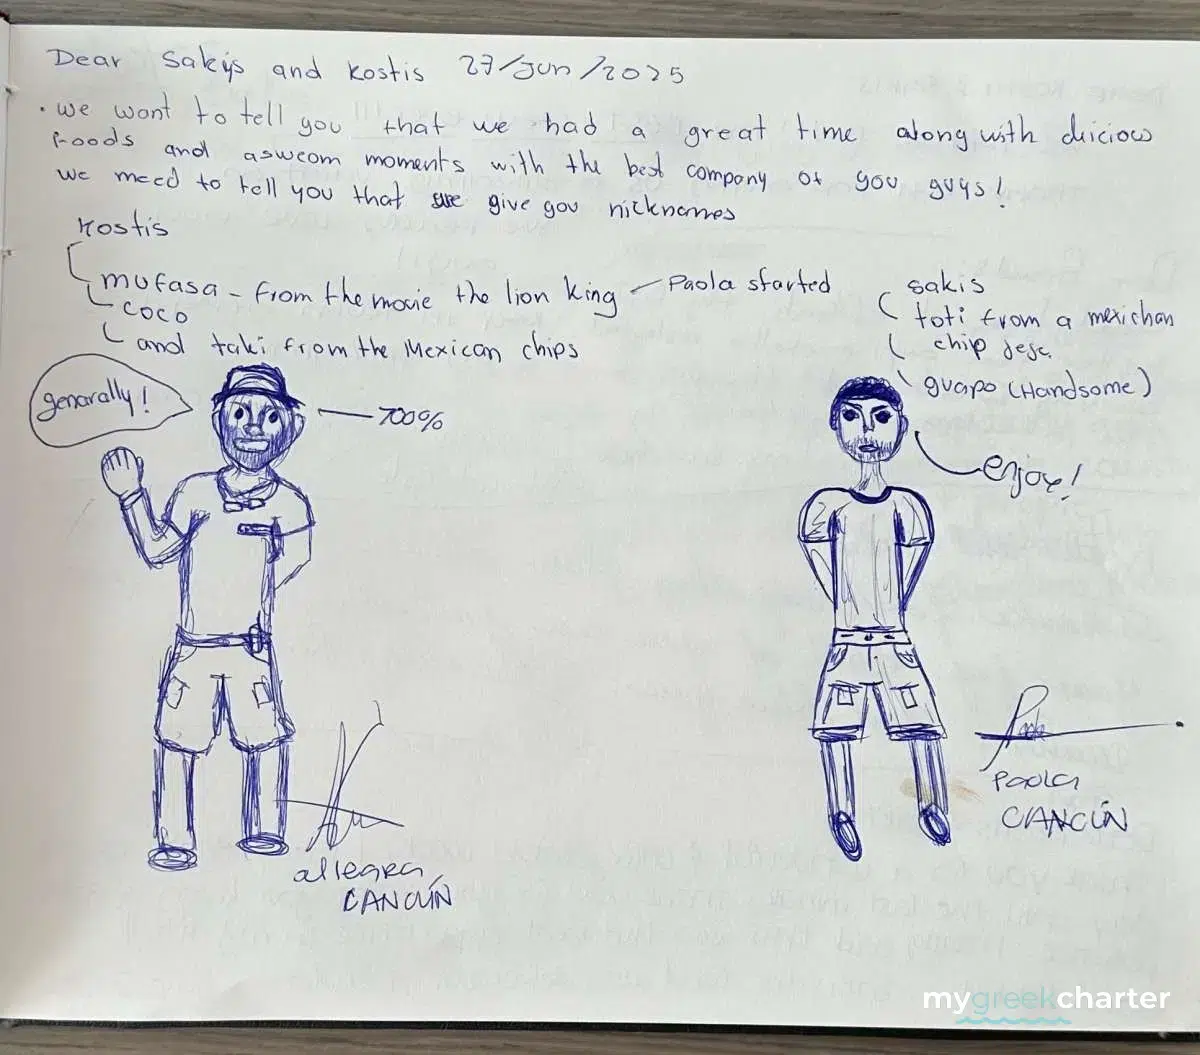 Dear Sakis and Kostis 27/Jun/2025
• we want to tell you that we had a great time along with dicious
foods and aswcom moments with the best company of you guys!
we need to tell you that we give you nicknames
Kostis
mufasa - from the movie the lion king - Paola started
coco
and taki from the Mexican chips
sakis
toti from a mexichan
chip jeje
guapo (Handsome)
genarally!
700%
enjoy!
Paola
CANCÚN
allegra
CANCÚN
mygreekcharter